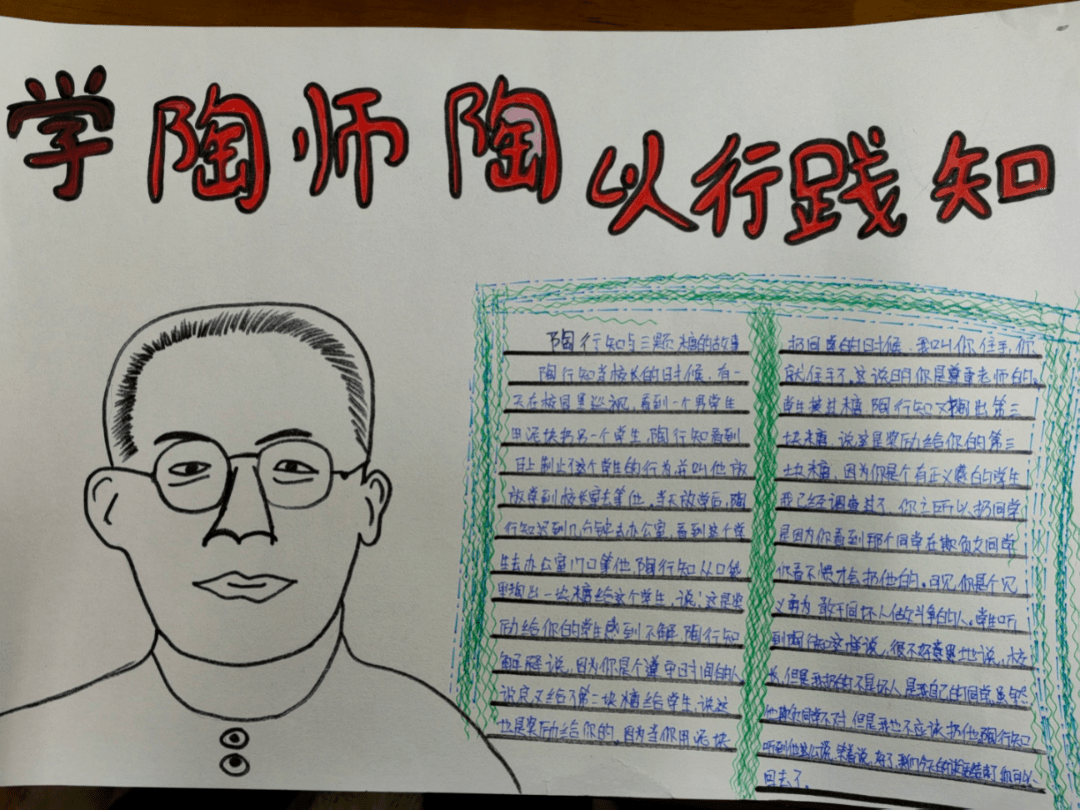 学陶师陶 以行践知
陶行知与三颗糖的故事
陶行知当校长的时候，有一
天在校园里巡视，看到一个男学生
用泥块扔另一个学生，陶行知看到
后止制止了这个学生的行为并叫他放
放学到校长室去等他。当天放学后，陶
行知迟到几分钟去办公室，看到这个学
生去办公室门口等他，陶行知从口袋
里掏出一块糖给这个学生，说：这是奖
励给你的学生感到不解，陶行知
解释说，因为你是个遵守时间的人
说完又给了第二块糖给学生，说这
也是奖励给你的，因为当你用泥块
扔同学的时候，我叫你住手，你
就住手了。这说明你是尊重老师的。
学生接过糖，陶行知又掏出第三
块糖，说这是奖励给你的第三
块糖，因为你是个有正义感的学生
我已经调查过了，你之所以扔同学
是因为你看到那个同学在欺负女同学
你看不惯才会扔他的。可见你是个见
义勇为，敢于同坏人做斗争的人。学生听
到陶行知这样说，很不好意思地说，校
长，但是我扔的不是坏人，是我自己的同学虽然
他欺负同学不对，但是我也不应该扔他陶行知
听到他这么说，笑着说，好了，我们今天的谈话结束了你可以
回去了。